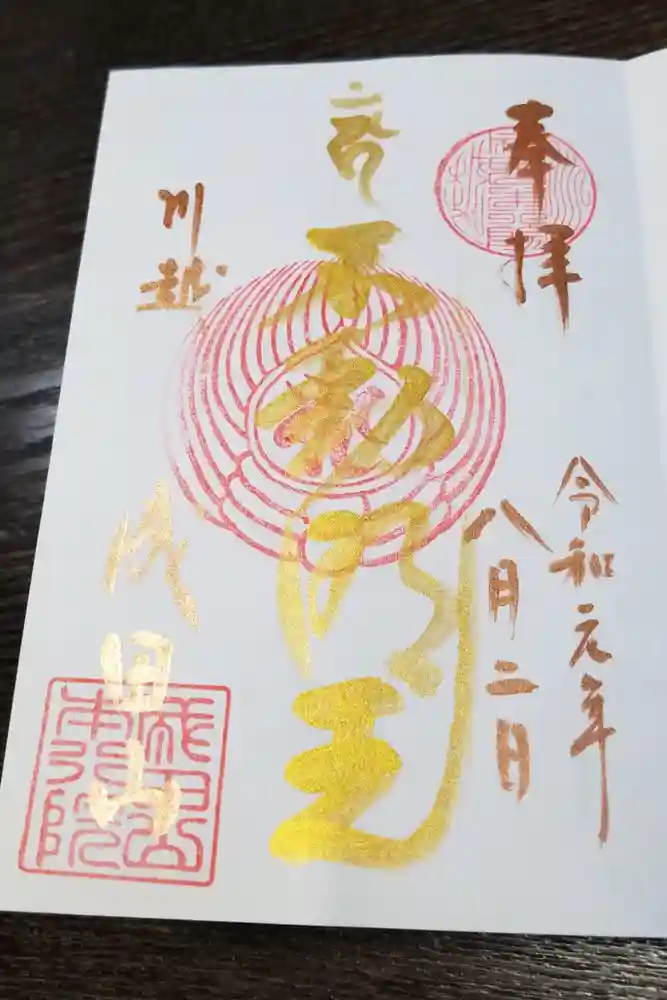 奉拝
令和元年
八月二日
不動明王
川越
成田山
成田山
本行院